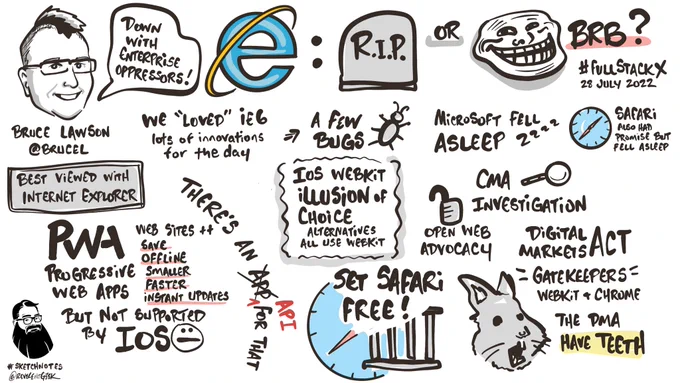 DOWN
WITH
ENTERPRISE
OPPRESSORS!
e
:
R.I.P.
OR
BRB?
#FULLSTACKX
28 JULY 2022
BRUCE LAWSON
@BRUCEL
WE "LOVED" iE6
lots of innovations
for the day
A FEW
BUGS
MICROSOFT FELL
ASLEEP ZZZZ
SAFARI
ALSO HAD
PROMISE BUT
FELL ASLEEP
BEST VIEWED WITH
INTERNET EXPLORER
THERE'S AN APP FOR THAT
API
IOS WEBKIT
iLLUSION OF
CHOICE
ALTERNATIVES
ALL USE WEBKIT
CMA
INVESTIGATION
OPEN WEB
ADVOCACY
DIGITAL
MARKETS ACT
GATEKEEPERS
WEBKIT + CHROME
THE DMA
HAVE TEETH
PWA
PROGRESSIVE
WEB APPS
WEB SITES ++
SAFE
OFFLINE
SMALLER
FASTER
INSTANT UPDATES
BUT NOT SUPPORTED
BY IOS
SET SAFARI
FREE!
#SKETCHNOTES